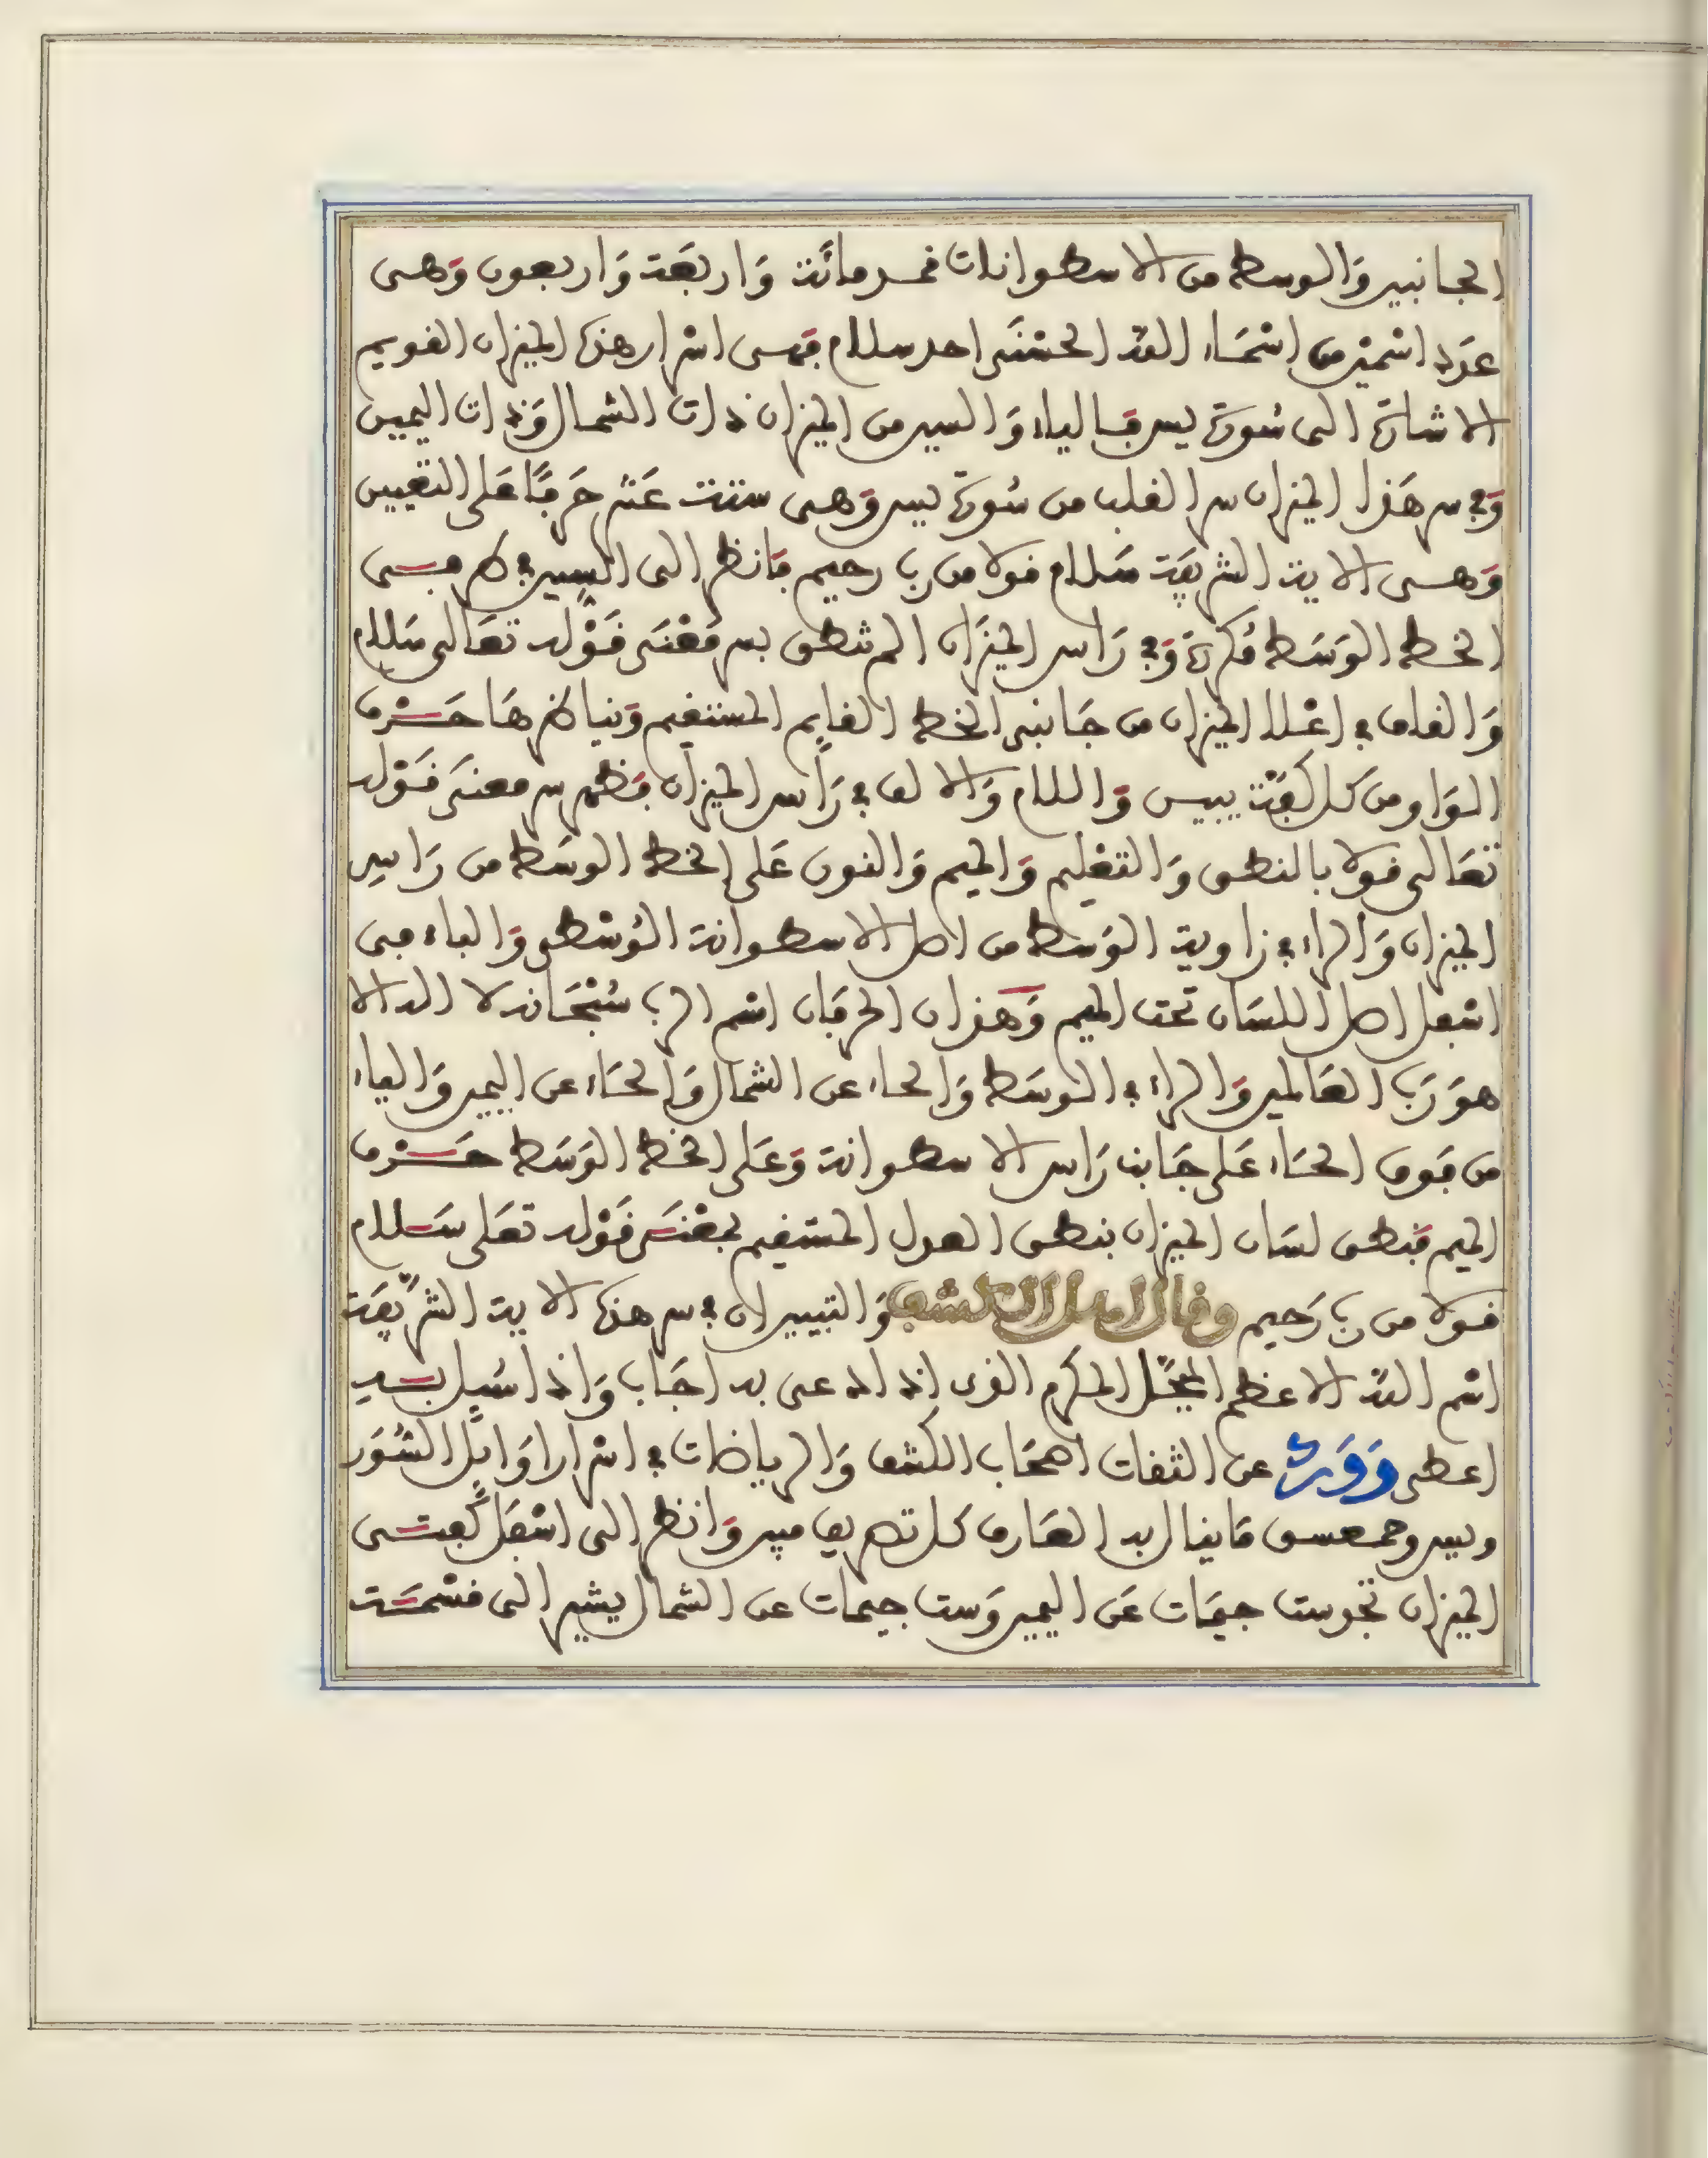 الجانبين وَالوسط من الاسطوانات فخرمائة وَاربعَة وَاربعون وَهى
عدَد اسْمين من اسْمَاء الله الحسْنَى احد سلام فمن اسْرار هذه الميزان القويم
الاشارة الى سُورة يس فَالياء وَالسين من الميزان ذات الشمال وَذات اليمين
وَفى سر هَذا الميزان سر القلب من سُورة يس وَهى ستة عَشر حَرفًا على التعْيين
وَهى الاية الشريفَة سَلام قولا من رب رحيم فَانظر الى السين فى طرفى
الخط الوَسَط مُكررة وَفى رَاس الميزَان المنطق بسر مَعْنَى قَوْله تعَالى سَلام
وَالقاف فى اعْلا الميزان من جَانبى الخط القايم المستقيم وَبباطنهَا حَرْف
الوَاو من كل كفة يبين وَاللام وَالالف فى رَاس الميزان فظهر سر معنَى قَوْله
تعَالى قولا بالنطق وَالتعْليم وَالميم وَالنون عَلى الخط الوسَط من رَاس
الميزان وَالراء فى زاوية الوَسَط من اصل الاسطوانة الوُسْطى وَالباء فى
اسْفل اصل اللسَان تحت الميم وَهذان الحرفَان اسْم الرب سُبْحَانه لا اله الا
هوَ رَب العَالمين وَالراء فى الوسَط وَالحاء عن الشمال وَالحَاء عن اليمين وَالياء
من فَوق الحَاء عَلى جَانب رَاس الاسطوانة وَعَلى الخط الوَسَط حَرْف
الميم فنطق لسَان الميزان بنطق العدل المستقيم بمعْنَى قَوْله تعَلى سَلام
قولا من رب رَحيم وقال اهل الكشف وَالتبيين ان فى سر هذه الاية الشريفَة
اسْم الله الاعظم المبجَّل المكرم الذى اذا دعى به اجَاب وَاذا سُيل به
اعطى وَوَرد عن الثقات اصحَاب الكشف وَالرياضات فى اسْرار اوَايل السُّوَر
ويس وحمعسق مَا ينال به العَارف كل تصريف مبين وَانظر الى اسْفَل كفتى
الميزان تجد ست جيمَات عَن اليمين وَست جيمات عن الشمال يشير الى قسْمَة